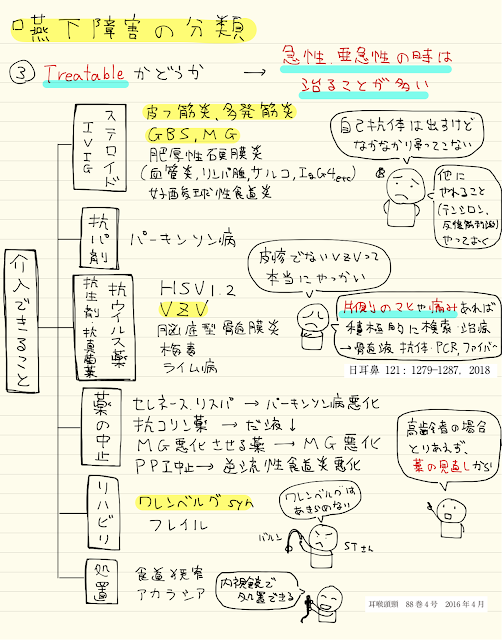 嚥下障害の分類
③ Treatable かどうか → 急性、亜急性の時は
治ることが多い
介入できること
ステロイド
IVIG
皮フ筋炎、多発筋炎
GBS, MG
肥厚性硬膜炎
(血管炎, リンパ腫, サルコ, IgG4 etc)
好酸球性食道炎
自己抗体は出すけど
なかなか帰ってこない
他に
やれること
(テンシロン,
反復刺激試験)
やっておく
抗パ剤
パーキンソン病
抗ウイルス薬
抗生剤
抗真菌薬
HSV1.2
VZV
脳底型髄膜炎
梅毒
ライム病
皮疹でないVZVって
本当にやっかい
片側のマヒや痛みあれば
積極的に検索・治療
→髄液 抗体・PCR, ファイバー
日耳鼻 121：1279-1287, 2018
薬の中止
セレネース、リスパ → パーキンソン病悪化
抗コリン薬 → だ液↓
MG悪化させる薬 → MG悪化
PPI中止 → 逆流性食道炎悪化
高齢者の場合
とりあえず、
薬の見直しから
リハビリ
ワレンベルグsyn
フレイル
ワレンベルグは
あきらめない
バルン
STさん
処置
食道狭窄
アカラシア
内視鏡で
処置できる
耳喉頭頸 88巻4号 2016年4月